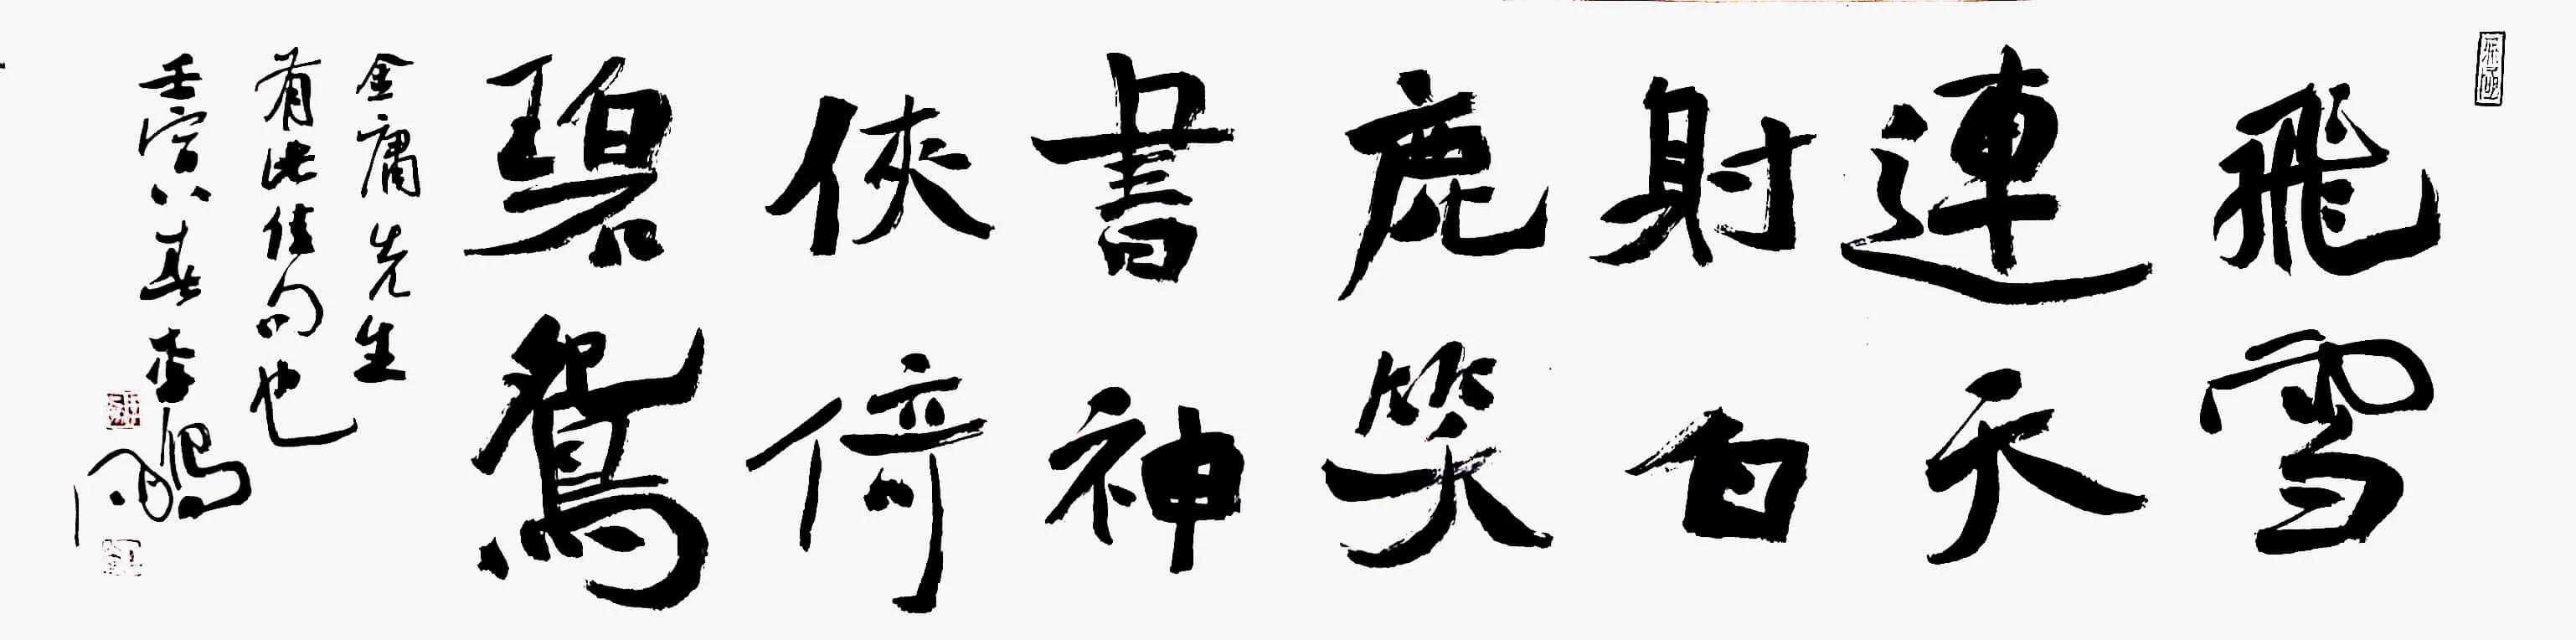 飛雪
連天
射白
鹿笑
書神
俠倚
碧鴛
金庸先生
有此佳句也
壬寅春李